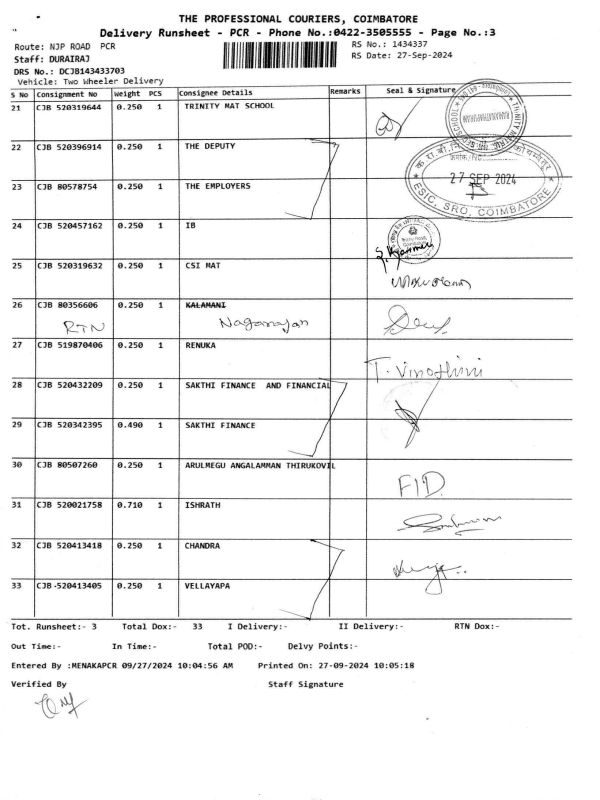 THE PROFESSIONAL COURIERS, COIMBATORE
Delivery Runsheet - PCR - Phone No.:0422-3505555 - Page No.:3
Route: NJP ROAD PCR
RS No.: 1434337
Staff: DURAIRAJ
RS Date: 27-Sep-2024
DRS No.: DCJB143433703
Vehicle: Two Wheeler Delivery
S No Consignment No Weight PCS Consignee Details Remarks Seal & Signature
21 CJB 520319644 0.250 1 TRINITY MAT SCHOOL
22 CJB 520396914 0.250 1 THE DEPUTY
27 SEP 2024
23 CJB 80578754 0.250 1 THE EMPLOYERS
ESIC, SRO, COIMBATORE
24 CJB 520457162 0.250 1 IB
25 CJB 520319632 0.250 1 CSI MAT
26 CJB 80356606 0.250 1 KALAMANI
RTN Naganajan
27 CJB 519870406 0.250 1 RENUKA
T. Vinothini
28 CJB 520432209 0.250 1 SAKTHI FINANCE AND FINANCIAL
29 CJB 520342395 0.490 1 SAKTHI FINANCE
30 CJB 80507260 0.250 1 ARULMEGU ANGALAMMAN THIRUKOVIL
FID
31 CJB 520021758 0.710 1 ISHRATH
32 CJB 520413418 0.250 1 CHANDRA
33 CJB-520413405 0.250 1 VELLAYAPA
Tot. Runsheet:- 3 Total Dox:- 33 I Delivery:- II Delivery:- RTN Dox:-
Out Time:- In Time:- Total POD:- Delvy Points:-
Entered By :MENAKAPCR 09/27/2024 10:04:56 AM Printed On: 27-09-2024 10:05:18
Verified By Staff Signature